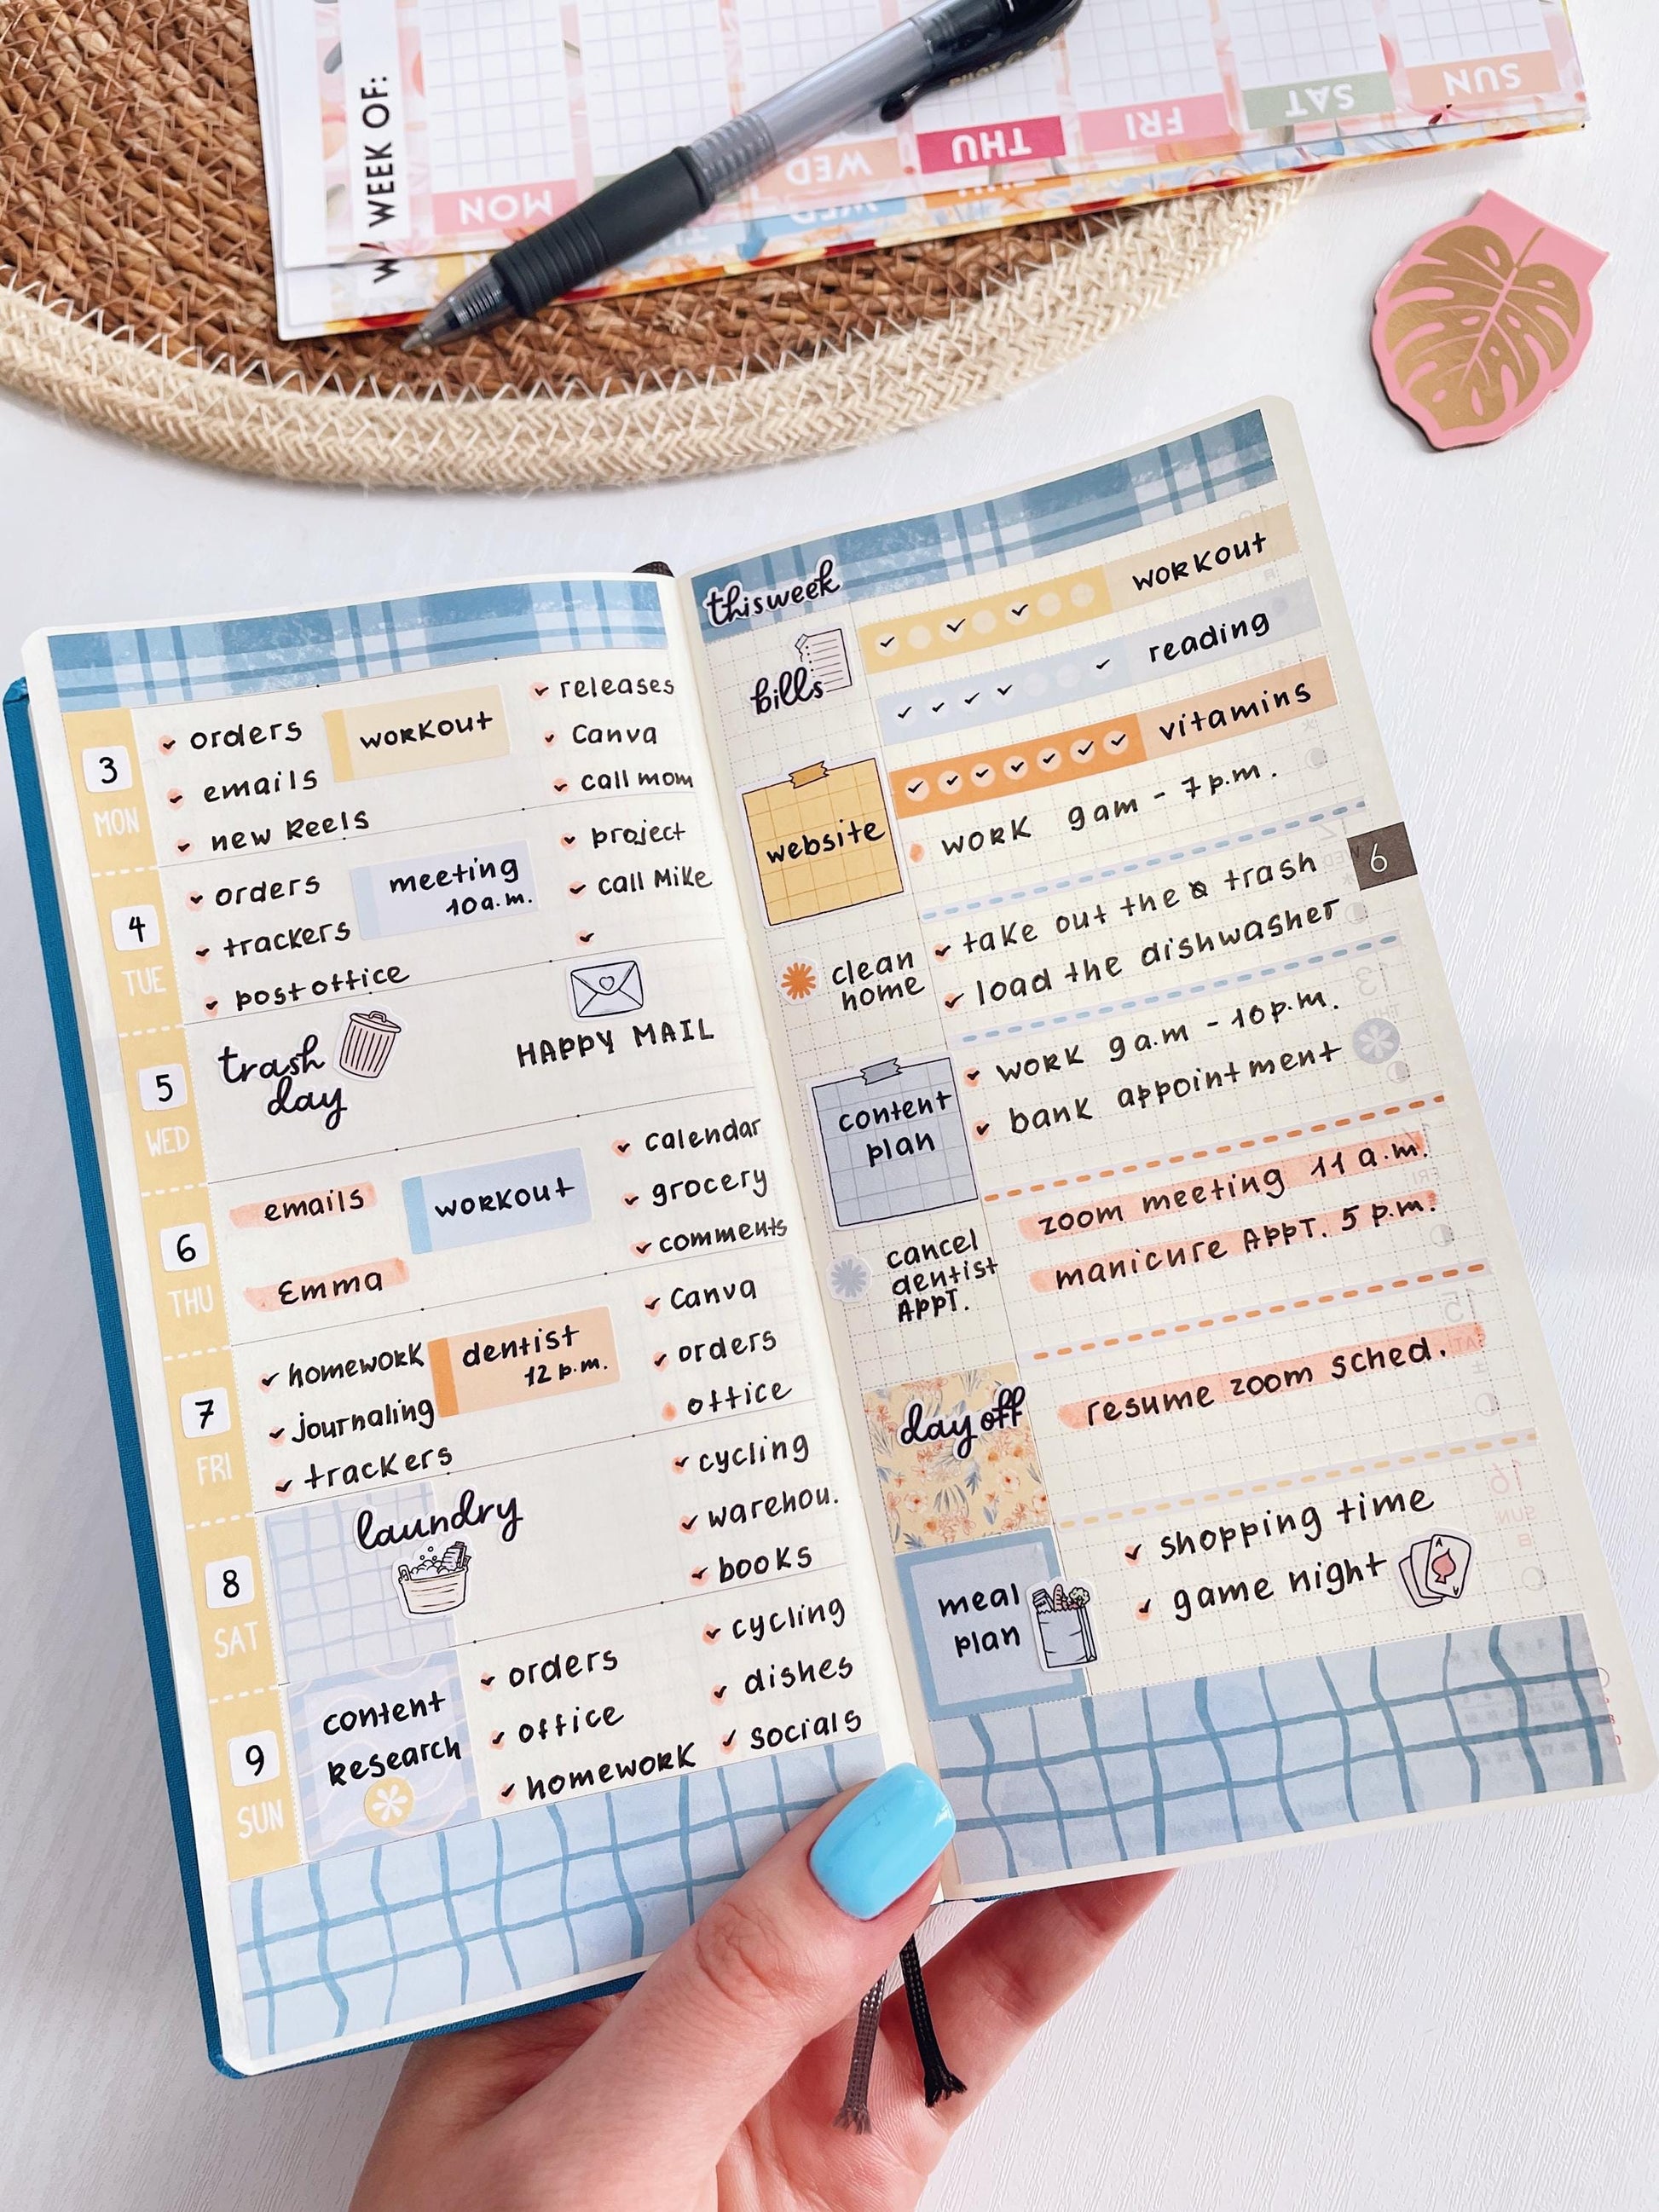 WEEK OF:
W
MON
WED
THU
FRI
SAT
SUN
WED
PILOT G-2
3
MON
orders
emails
new Reels
workout
releases
Canva
call mom
4
TUE
orders
trackers
post office
meeting
10 a.m.
project
call Mike
5
WED
trash
day
HAPPY MAIL
6
THU
emails
Emma
workout
calendar
grocery
comments
7
FRI
homework
journaling
trackers
dentist
12 p.m.
Canva
orders
office
8
SAT
laundry
cycling
warehou.
books
9
SUN
content
research
orders
office
homework
cycling
dishes
socials
this week
bills
workout
reading
vitamins
website
work 9am - 7p.m.
6
clean
home
take out the trash
load the dishwasher
content
plan
work 9a.m - 10p.m.
bank appointment
cancel
dentist
APPT.
zoom meeting 11 a.m.
manicure APPT. 5 p.m.
day off
resume zoom sched.
meal
plan
shopping time
game night
A